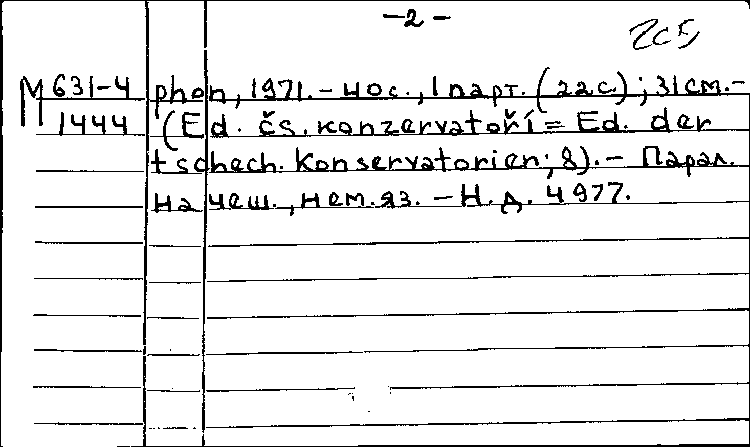 -2-
205
M 631-4 phon, 1971. - 40 с., 1 парт. (22 с); 31 см. -
1444 (Ed. čs. konzervatoří = Ed. der
tschech. Konservatorien; 8). - Парал.
на чеш., нем. яз. - Н. д. 4977.